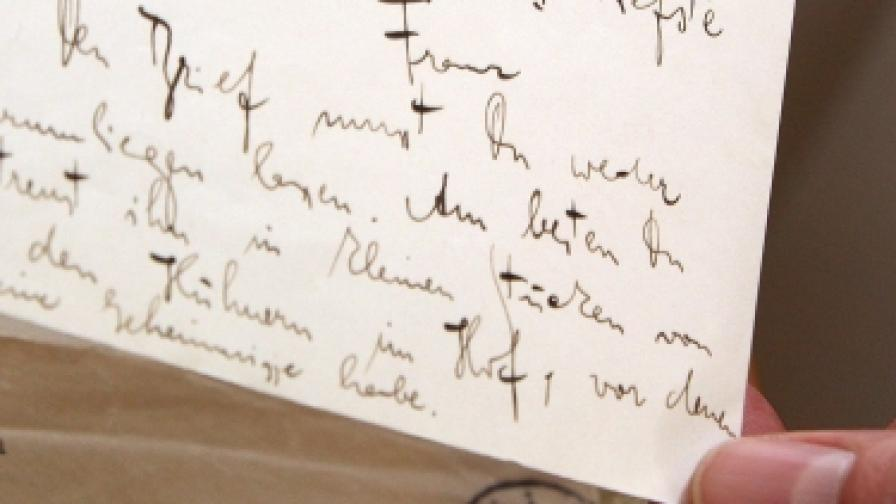 Franz
Den Brief musst Du weder
rumliegen lassen. Am besten Du
streust ihn in kleinen Stücken von
den Hühnern im Hof, vor denen
geheimnisse habe.